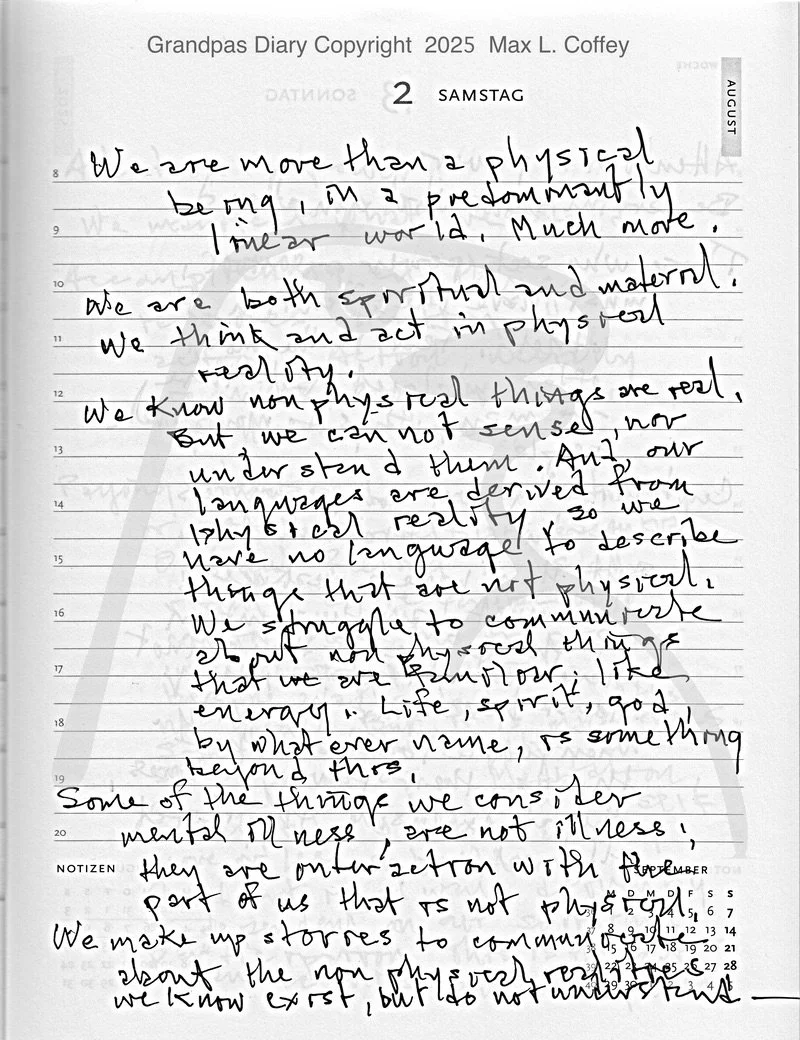 Grandpas Diary Copyright 2025 Max L. Coffey
2 SAMSTAG
AUGUST
We are more than a physical
being, in a predominantly
linear world. Much more.
We are both spiritual and material.
We think and act in physical
reality.
We know nonphysical things are real.
But we can not sense, nor
understand them. And, our
languages are derived from
physical reality so we
have no language to describe
things that are not physical.
We struggle to communicate
about non physical things
that we are familiar, like
energy. Life, spirit, god,
by what ever name, is something
beyond this.
Some of the things we consider
mental illness, are not illness;
NOTIZEN
they are interaction with the
SEPTEMBER
part of us that is not physical.
We make up stories to communicate
about the non physical realities
we know exist, but do not understand